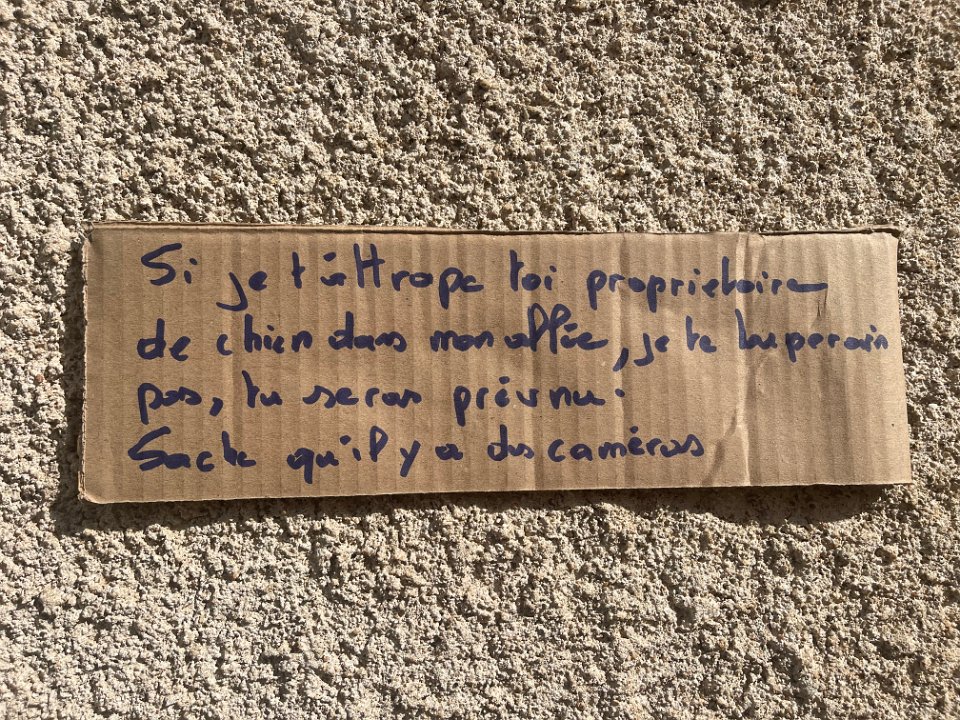 Si je t'attrape toi proprietaire
de chien dans mon allée, je te
pas, tu seras prévenu.
Sache qu'il y a des caméras